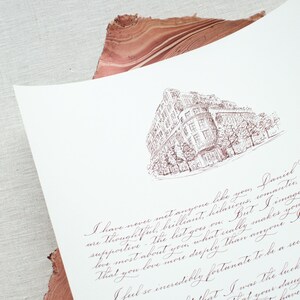 I have never met anyone like you Daniel
as thoughtful, brilliant, hilarious, romantic
supportive. The list goes on. But, if I may
love most about you, what really makes you
that you love more deeply than anyone
I feel so incredibly fortunate to be a
that I was the luck
that your dan